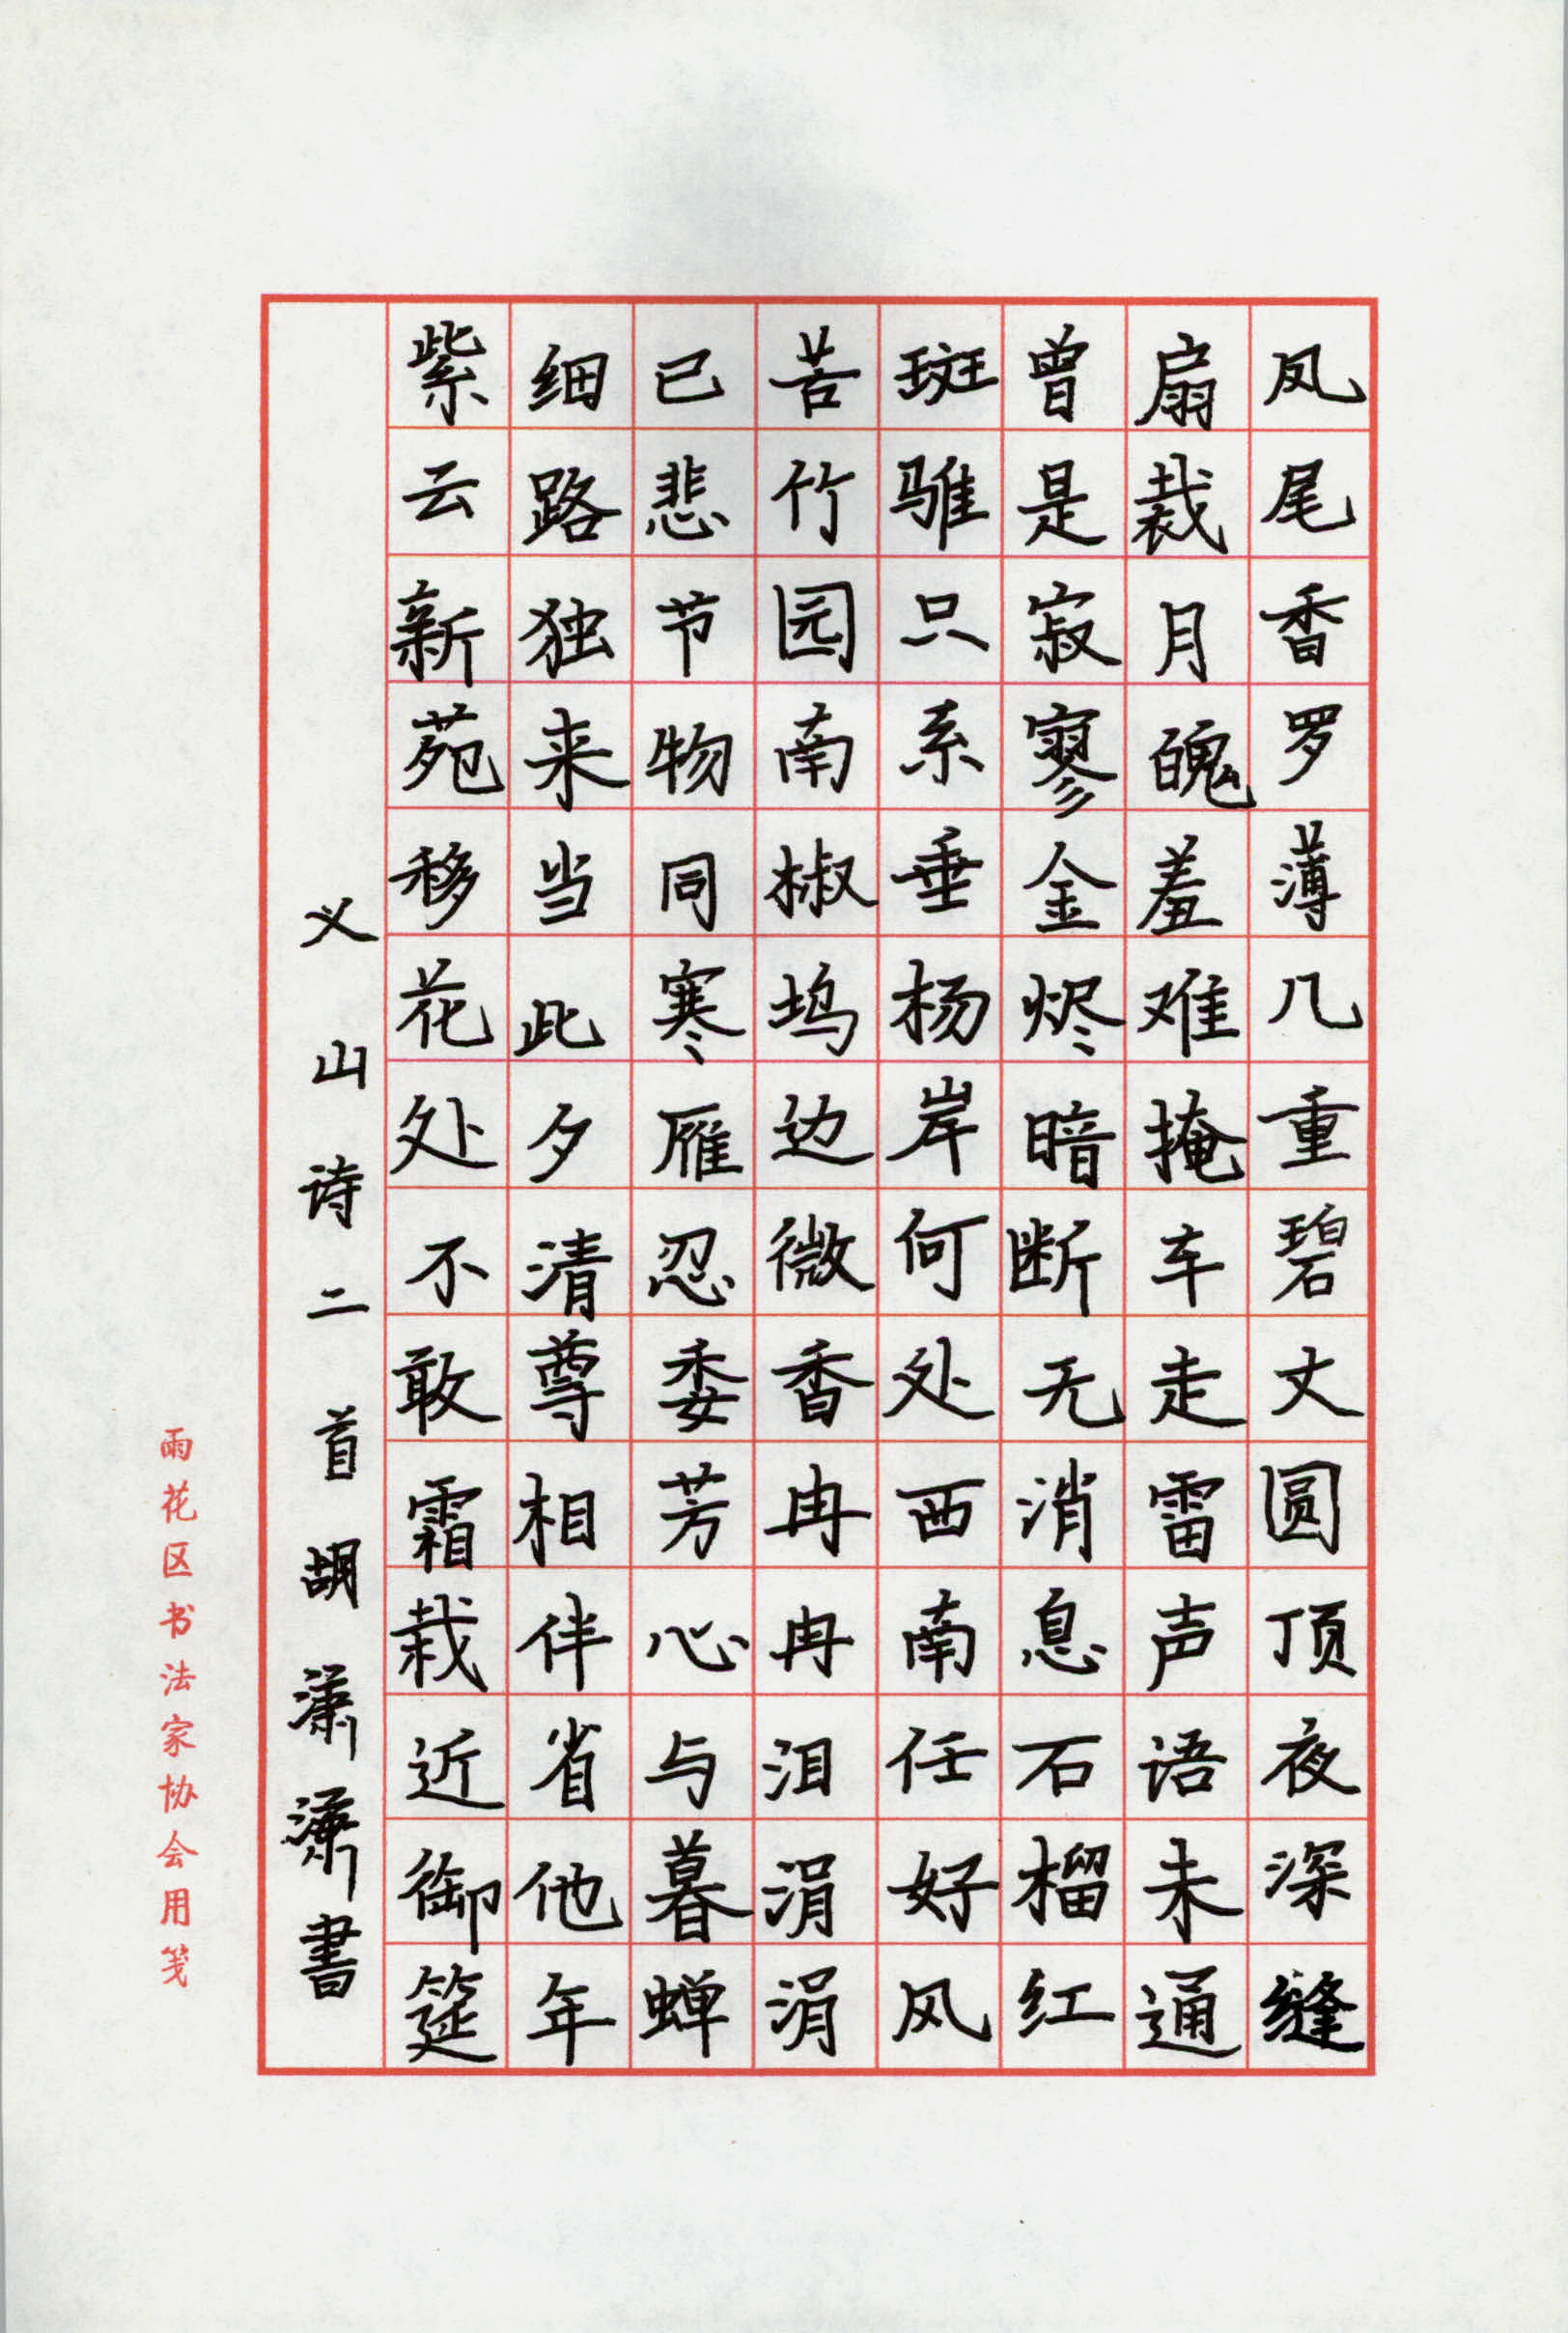 凤尾香罗薄几重碧文圆顶夜深缝
扇裁月魄羞难掩车走雷声语未通
曾是寂寥金烬暗断无消息石榴红
斑骓只系垂杨岸何处西南任好风
苦竹园南椒坞边微香冉冉泪涓涓
已悲节物同寒雁忍委芳心与暮蝉
细路独来当此夕清尊相伴省他年
紫云新苑移花处不敢霜栽近御筵
义山诗二首胡潇潇書
雨花区书法家协会用笺